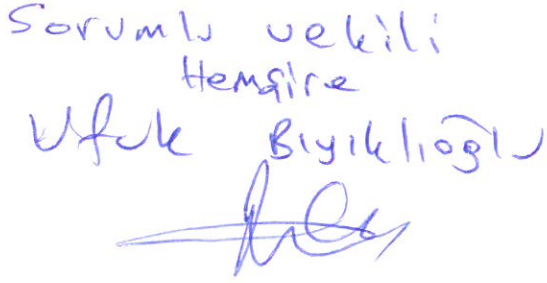 Sorumlu vekili
Hemşire
Ufuk Bıyıklıoğlu